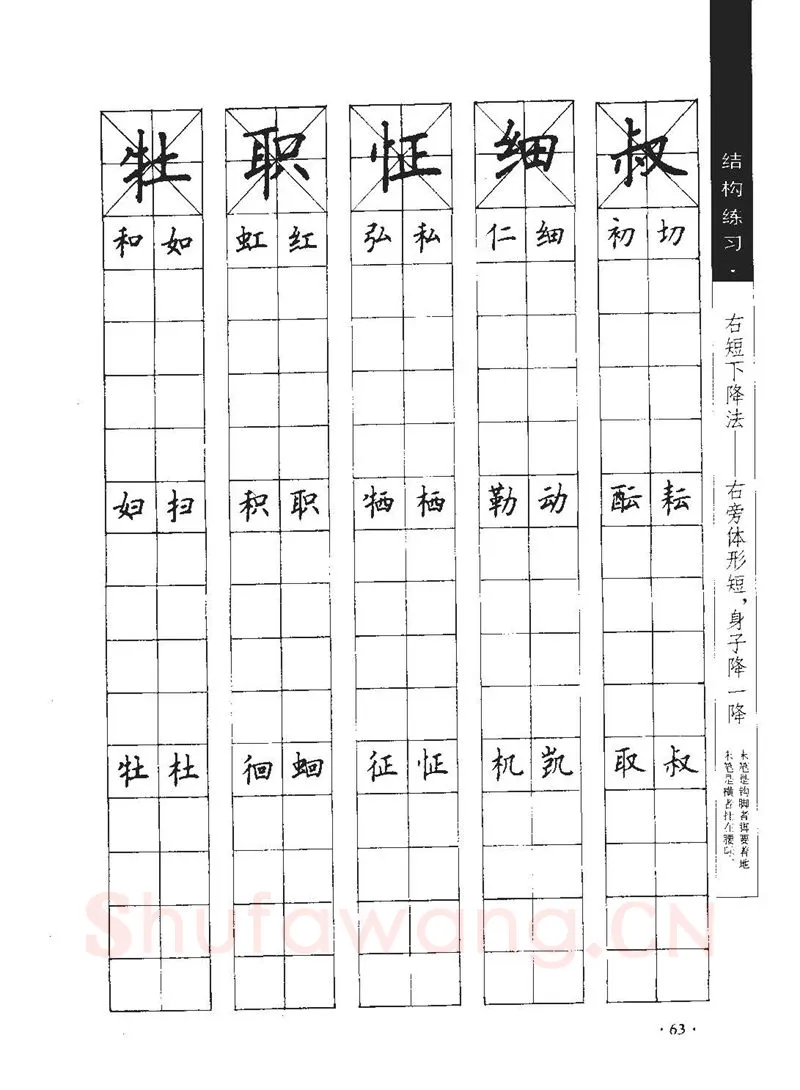 结构练习·
右短下降法——右旁体形短，身子降一降
末笔是钩脚者需要着地
末笔是横者挂在腰际、
叔 细 怔 职 牡
初 切 仁 细 弘 私 虹 红 和 如
酝 耘 勒 动 牺 栖 积 职 妇 扫
取 叔 机 凯 征 怔 徊 蛔 牡 杜
Shufawang.CN
·63·